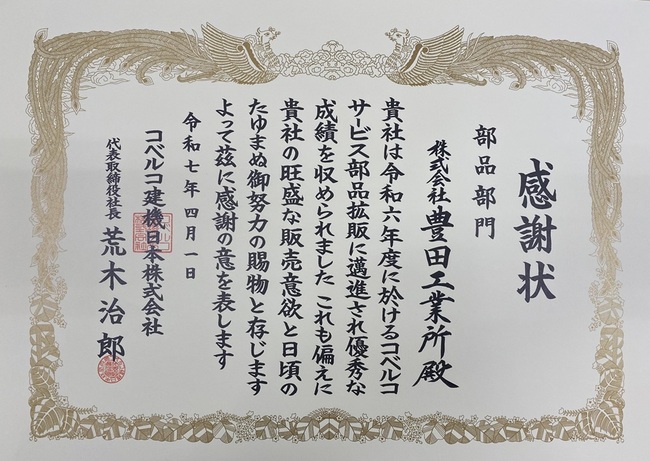 感謝状
部品部門
株式会社 豊田工業所殿
貴社は令和六年度に於けるコベルコ
サービス部品拡販に邁進され優秀な
成績を収められました これも偏えに
貴社の旺盛な販売意欲と日頃の
たゆまぬ御努力の賜物と存じます
よって茲に感謝の意を表します
令和七年四月一日
コベルコ建機日本株式会社
代表取締役社長 荒木治郎